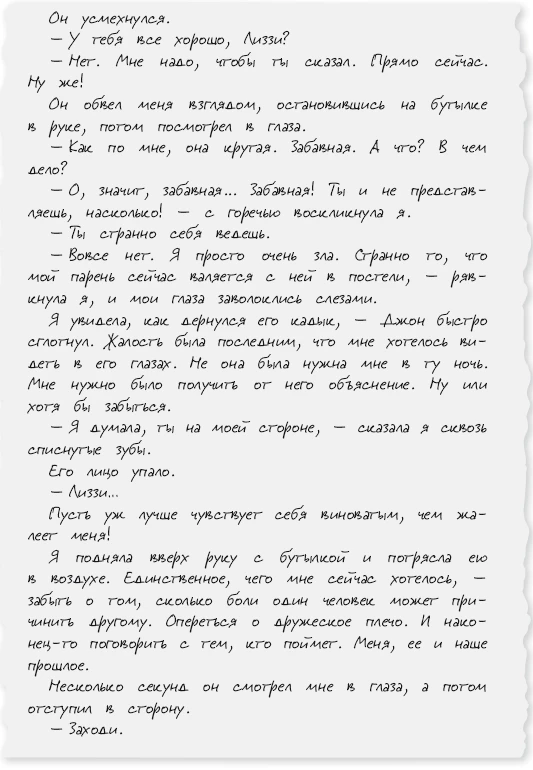 Он усмехнулся.
— У тебя все хорошо, Лиззи?
— Нет. Мне надо, чтобы ты сказал. Прямо сейчас.
Ну же!
Он обвел меня взглядом, остановившись на бутылке
в руке, потом посмотрел в глаза.
— Как по мне, она крутая. Забавная. А что? В чем
дело?
— О, значит, забавная... Забавная! Ты и не представ-
ляешь, насколько! — с горечью воскликнула я.
— Ты странно себя ведешь.
— Вовсе нет. Я просто очень зла. Странно то, что
мой парень сейчас валяется с ней в постели, — ряв-
кнула я, и мои глаза заволоклись слезами.
Я увидела, как дернулся его кадык, — Джон быстро
сглотнул. Жалость была последним, что мне хотелось ви-
деть в его глазах. Не она была нужна мне в ту ночь.
Мне нужно было получить от него объяснение. Ну или
хотя бы забыться.
— Я думала, ты на моей стороне, — сказала я сквозь
списнутые зубы.
Его лицо упало.
— Лиззи...
Пусть уж лучше чувствует себя виноватым, чем жа-
леет меня!
Я подняла вверх руку с бутылкой и потрясла ею
в воздухе. Единственное, чего мне сейчас хотелось, —
забыть о том, сколько боли один человек может при-
чинить другому. Опереться о дружеское плечо. И нако-
нец-то поговорить с тем, кто поймет. Меня, ее и наше
прошлое.
Несколько секунд он смотрел мне в глаза, а потом
отступил в сторону.
— Заходи.